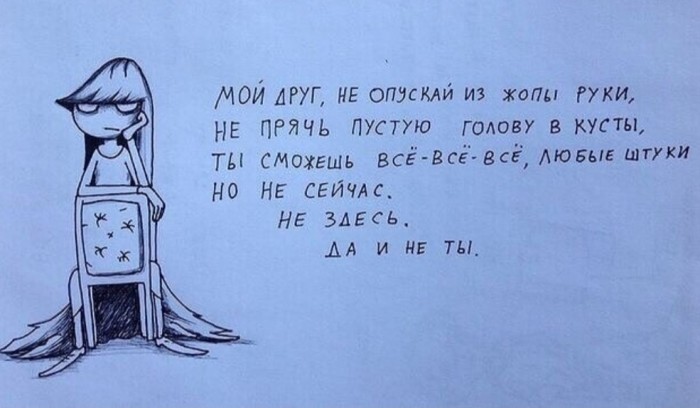 МОЙ ДРУГ, НЕ ОПУСКАЙ ИЗ ЖОПЫ РУКИ,
НЕ ПРЯЧЬ ПУСТУЮ ГОЛОВУ В КУСТЫ,
ТЫ СМОЖЕШЬ ВСЁ-ВСЁ-ВСЁ, ЛЮБЫЕ ШТУКИ
НО НЕ СЕЙЧАС.
НЕ ЗДЕСЬ.
ДА И НЕ ТЫ.